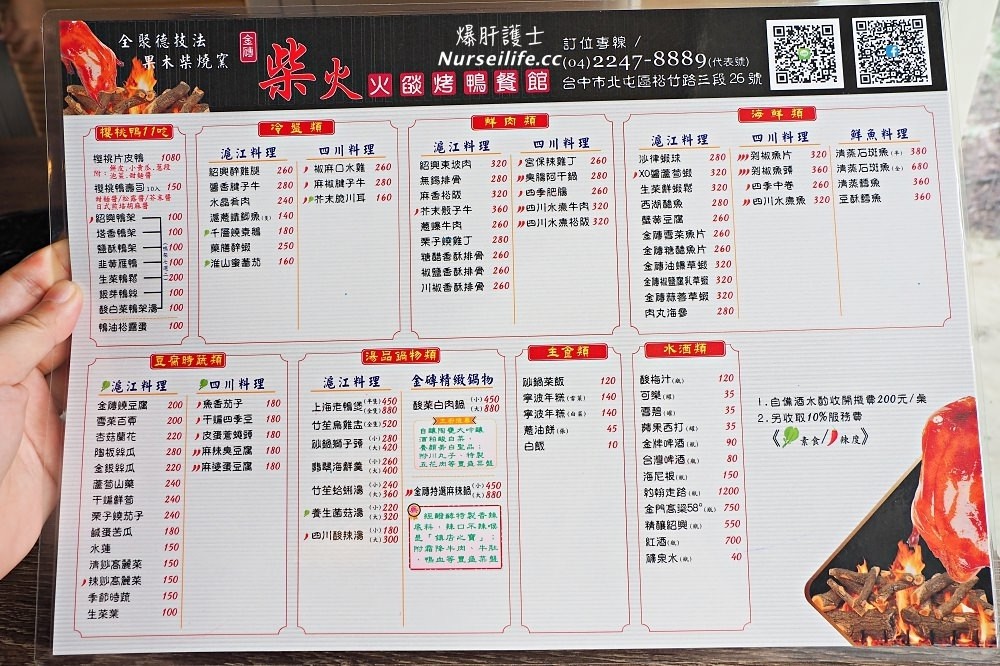 全聚德技法
果木柴燒窯
金磚
柴火
火燄烤鴨餐館
爆肝護士
Nurseilife.cc
訂位專線 /
(04) 2247-8889(代表號)
台中市北屯區松竹路三段26號
櫻桃鴨11吃
櫻桃片皮鴨 1080
櫻桃鴨壽司 10入 150
紹興鴨架 100
塔香鴨架 100
鹽酥鴨架 100
韭黃雁鴨 100
生菜鴨鬆 200
銀芽鴨絲 100
酸白菜鴨架湯 100
鴨油松露蛋 100
冷盤類
滬江料理
紹興醉雞腿 260
醬香腱子牛 280
水晶肴肉 240
滬蔥鯽魚(隻) 140
千層燒素鵝 180
藥膳醉蝦 250
淮山蜜蕃茄 160
四川料理
椒麻口水雞 260
麻椒腱子牛 280
芥末脆川耳 160
鮮肉類
滬江料理
紹興東坡肉 320
無錫排骨 280
麻香松阪 320
芥末骰子牛 360
蔥爆牛肉 260
栗子燒雞丁 280
糖醋香酥排骨 260
椒鹽香酥排骨 260
川椒香酥排骨 260
四川料理
宮保辣雞丁 260
臭膶阿干鍋 280
四季肥腸 260
四川水煮牛肉 320
四川水煮松阪 320
海鮮類
滬江料理
沙律蝦球 280
XO醬蘆筍蝦 320
生菜鮮蝦鬆 320
西湖醋魚 280
蟹黃豆腐 260
金磚雪菜魚片 260
金磚糖醋魚片 260
金磚油爆草蝦 320
金磚椒鹽窩乳草蝦 320
金磚蒜蓉草蝦 320
肉丸海參 280
四川料理
剁椒魚片 320
剁椒魚頭 360
四季中卷 260
四川水煮魚 320
鮮魚料理
清蒸石斑魚(半) 380
清蒸石斑魚(全) 680
清蒸鱈魚 360
豆酥鱈魚 360
豆腐時蔬類
滬江料理
金磚燒豆腐 200
雪菜百頁 200
杏菇蘭花 220
陶板絲瓜 280
金銀絲瓜 220
蘆筍山藥 240
干煸鮮筍 240
栗子燒茄子 240
鹹蛋苦瓜 180
水蓮 150
清炒高麗菜 150
辣炒高麗菜 150
季節時蔬 150
生菜葉 100
四川料理
魚香茄子 180
干煸四季豆 180
皮蛋蒼蠅頭 180
麻辣臭豆腐 180
麻婆蛋豆腐 180
湯品鍋物類
滬江料理
上海老鴨煲 (半隻) 450
(全隻) 880
竹笙烏雞盅(全隻) 520
砂鍋獅子頭 (小) 280
(大) 420
翡翠海鮮羹 (小) 260
(大) 400
竹笙蛤蜊湯 (小) 240
(大) 360
養生菌菇湯 (小) 220
(大) 320
四川酸辣湯 (小) 180
(大) 300
金磚精緻鍋物
酸菜白肉鍋 (小) 450
(大) 880
自釀陶甕大吟釀
酒粕酸白菜，
養顏美白聖品；
附川丸子、特製
五花肉等豐盛菜盤
金磚特選麻辣鍋 (小) 450
(大) 880
經醱酵特製香辣
底料，辣口不辣喉
是「鎮店之寶」；
附霜降牛肉、牛肚、
鴨血等豐盛菜盤
主食類
砂鍋菜飯 120
寧波年糕(雪菜) 140
寧波年糕(白菜) 140
蔥油餅(張) 45
白飯 10
水酒類
酸梅汁(瓶) 120
可樂(瓶) 35
雪碧(瓶) 35
蘋果西打(罐) 35
金牌啤酒(瓶) 90
台灣啤酒(瓶) 80
海尼根(瓶) 150
約翰走路(瓶) 1200
金門高粱58°(瓶) 750
精釀紹興(瓶) 550
紅酒(瓶) 700
礦泉水(瓶) 40
1.自備酒水酌收開攤費200元/桌
2.另收取10%服務費
《素食/辣度》